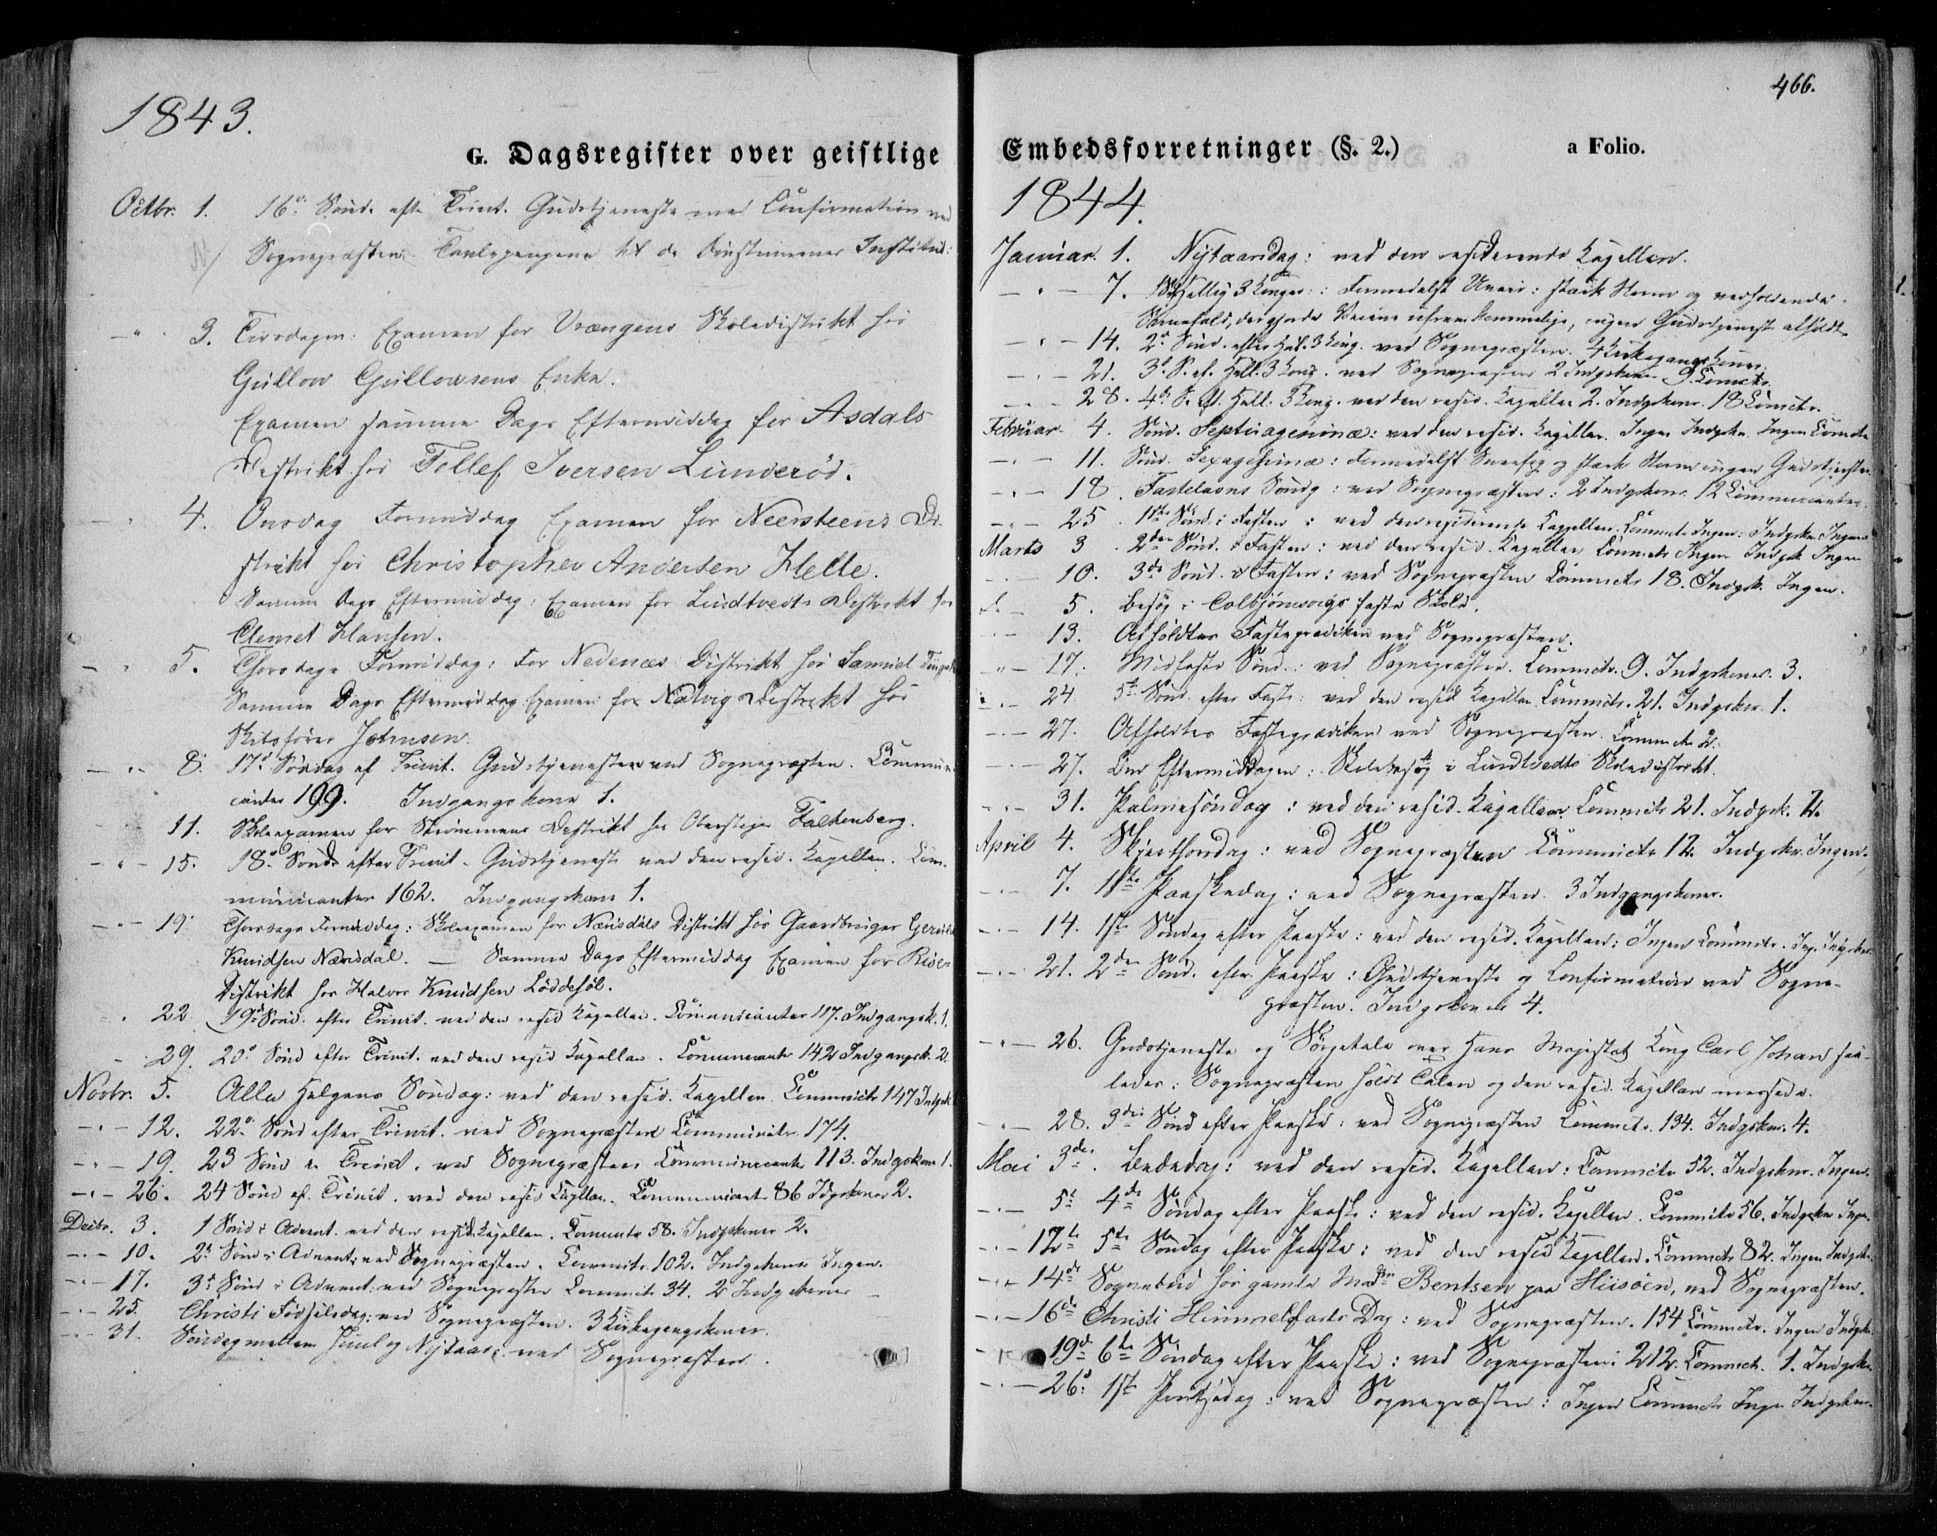 1843.
G. Dagsregister over geistlige
Octbr. 1. 16de Sönd. efter Trinit. Gudstjeneste med Confirmation ved
Sognepræsten. Tavlepengene til de Institut:
3. Tirsdagen: Examen for Vrængens Skoledistrikt hós
Gullow Gullowsens Enke.
Examen samme Dags Eftermiddag for Asdals
Distrikt hós Tellef Iversen Lunderöd.
4. Onsdag Formiddag Examen for Neersteens Di-
strikt hós Christopher Andersen Helle.
Samme Dags Eftermiddag: Examen for Lundtvedts Distrikt hos
Clemet Hansen.
5. Thorsdags Formiddag: For Nedenæs Distrikt hós Samuel
Samme Dags Eftermiddag Examen for Natvig Distrikt hós
Skibsförer Johnsen.
8. 17de Söndag ef Trinit. Gudstjenesten ved Sognepræsten. Commúni-
canter 199. Indgangskone 1.
11. Skoleexamen for Strömmens Distrikt hos Falckenberg.
15. 18de Sönd. efter Trinit. Gudstjeneste ved den resid. Kapellan. Com-
municanter 162. Indgangskone 1.
19. Thorsdags Formiddag: Skoleexamen for Næsdals Distrikt hós Gaardbruger
Knudsen Næsdal. — Samme Dags Eftermiddag Examen for
Distrikt hos Halvor Knudsen Löddesöl.
22 19de Sönd. efter Trinit. ved den resid Kapellan. Communicanter 117. Indgangsk. 1.
29. 20de Sönd efter Trinit. ved den resid Kapellan. Communicanter 142 Indgangsk. 2.
Novbr. 5. Alle Helgens Söndag: ved den resid. Kapellan. Commnicte 147 Indgsk.
12. 22de Sönd efter Trinit. ved Sognepræsten Communicter 174.
19. 23 Sönd e. Trinit. ved Sognepræsten Communicanter 113. Indgskone 1.
26. 24 Sönd ef. Trinit. ved den resid Kapellan. Communicanter 86 Idgskoner 2.
Decbr. 3. 1 Sönd i Advent. ved den resid. Kapellan. Communctr 58. Indgskoner 2.
10. 2d Sönd i Advent: ved Sognepræsten. Communictr. 102. Indgskoner Ingen.
17. 3d Sönd i Advent: ved Sognepræsten Communict 34. 2 Indgskoner
25. Christi Födselsdag: ved Sognepræsten. 3 Kirkegangskoner.
31. Söndag mellem Juul og Nytaar: ved Sognepræsten.
466.
Embedsforretninger (§. 2.) a Folio.
1844.
Januar. 1. Nytaarsdag: ved den residerende Kapellan.
7. Hellig 3 Konger: Formedelst Uveir: stærk Storm og vedholdende
Sneefald, der gjorde Veiene ufremkommelige, ingen Gudstjeneste afholdt
14. 2d Sönd. efter Hel. 3 Kong. ved Sognepræsten. 4 Kirkegangskoner.
21. 3d S. ef. Hell. 3 Kong. ved Sognepræsten 2 Indgskoner 9 Comctr.
28. 4d S. ef. Hell. 3 Kong. ved den resid. Kapellan 2. Indgskoner. 18 Comctr.
Februar 4. Sönd. Septuagesimæ: ved den resid. Kapellan. Ingen Indgsk. Ingen Comctr
11. Sönd. Sexagesimæ: Formedelst Sneefog og stærk Storm ingen Gudstjeneste
18. Fastelavns Söndg: ved Sognepræsten: 2 Indgskoner. 12 Communicanter.
25. 1ste Sönd. i Fasten: ved den residerende Kapellan. Commct. Ingen. Indgsk. Ingen
Marts 3. 2den Sönd. i Fasten: ved den resid. Kapellan Commctr Ingen Indgsk Ingen
10. 3de Sönd. i Fasten: ved Sognepræsten Commctr 18. Indgsk. Ingen.
5. Besög i Colbjörnsvigs faste Skole.
13. Afholdtes Fasteprædiken ved Sognepræsten.
17. Midfaste Sönd: ved Sognepræsten. Commctr. 9. Indgskoner. 3.
24 5te Sönd. efter Faste: ved den resid Kapellan. Commctr. 21. Indgskr. 1.
27. Afholdtes Fasteprædiken ved Sognepræsten. Commctr 2.
27. Om Eftermiddagen: Skolebesög i Lundtvedts Skoledistrikt.
31. Palmesöndag: ved den resid. Kapellan. Commctr 21. Indgsk. 2.
April 4. Skjertorsdag: ved Sognepræsten Commictr 12. Indgskr. Ingen.
7. 1ste Paaskedag: ved Sognepræsten. 3 Indgangskoner.
14. 1ste Söndag efter Paaske: ved den resid. Kapellan: Ingen Commctr. Ing. Indgskr.
21. 2den Sönd. efter Paaske: Gudstjeneste og Confirmation ved Sogne-
præsten. Indgskoner 4.
26. Gudstjeneste og Sörgetale over Hans Majestæt Kong Carl Johan
: Sognepræsten holdt Talen og den resid. Kapellan messede.
28. 3die Sönd efter Paaske: ved Sognepræsten Commctr. 134. Indgskr. 4.
Mai 3die. Bededag: ved den resid. Kapellan: Commctr 52. Indgskr. Ingen.
5t 4de Söndag efter Paaske: ved den resid. Kapellan. Commctr 56. Indgskr Ingn.
12te 5te Söndag efter Paaske: ved den resid Kapellan. Commctr 82. Ingen Indgsk.
14de Sognebud hos gamle Mdm Bentsen paa Hiisöen, ved Sognepræsten.
16de Christi Himmelfarts Dag: ved Sognepræsten. 154 Commctr. Ingen Indgskr
19d 6te Söndag efter Paaske: ved Sognepræsten: 212. Commct. 1. Indgsk.
26d 1ste Pintsedag: ved Sognepræsten: Ingen Commctr Ingn Indgskoner.